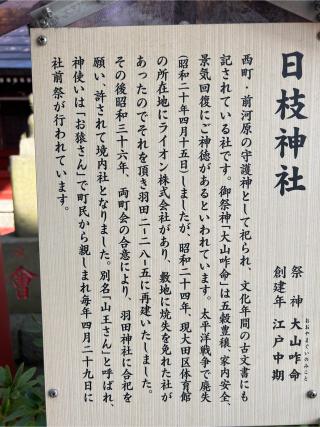 日枝神社
祭神 大山咋命
おおやまくいのみこと
創建年 江戸中期
西町・前河原の守護神として祀られ、文化年間の古文書にも
記されている社です。御祭神「大山咋命」は五穀豊穣、家内安全、
景気回復にご神徳があるといわれています。太平洋戦争で廃失
(昭和二十年四月十五日)しましたが、昭和二十四年、現大田区体育館
の所在地にライオン株式会社があり、敷地に焼失を免れた社が
あったのでそれを頂き羽田二ー二八ー五に再建いたしました。
その後昭和三十六年、両町会の合意により、羽田神社に合祀を
願い、許されて境内社となりました。別名「山王さん」と呼ばれ、
神使いは「お猿さん」で町民から親しまれ毎年四月二十九日に
社前祭が行われています。
會